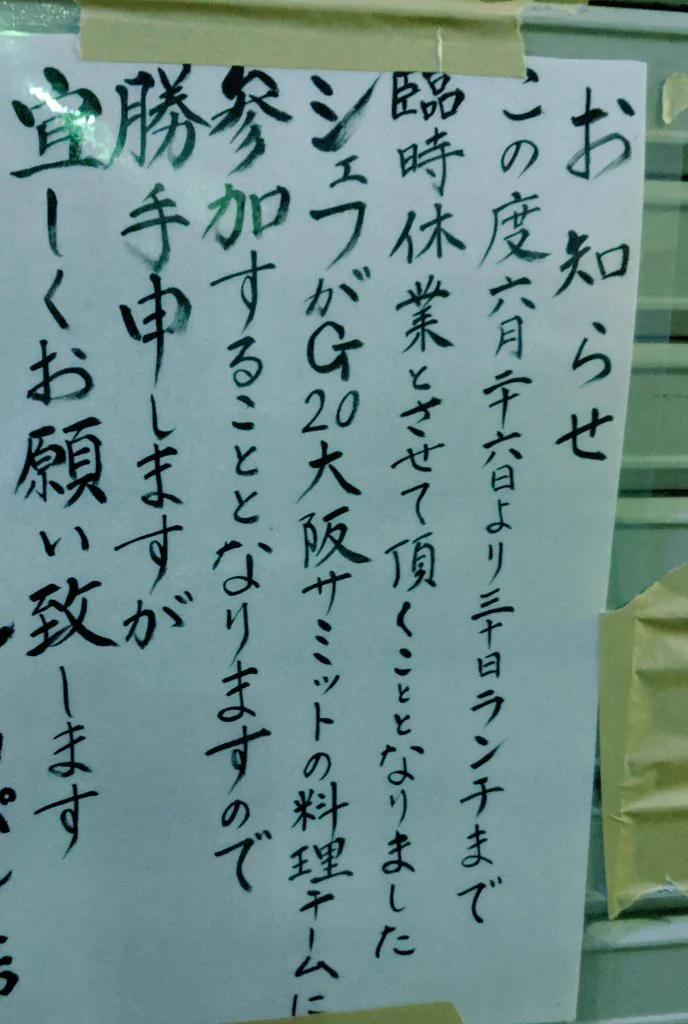 お知らせ
この度六月二十六日より三十日ランチまで
臨時休業とさせて頂くこととなりました
シェフがG20大阪サミットの料理チームに
参加することとなりますので
勝手申しますが
宜しくお願い致します